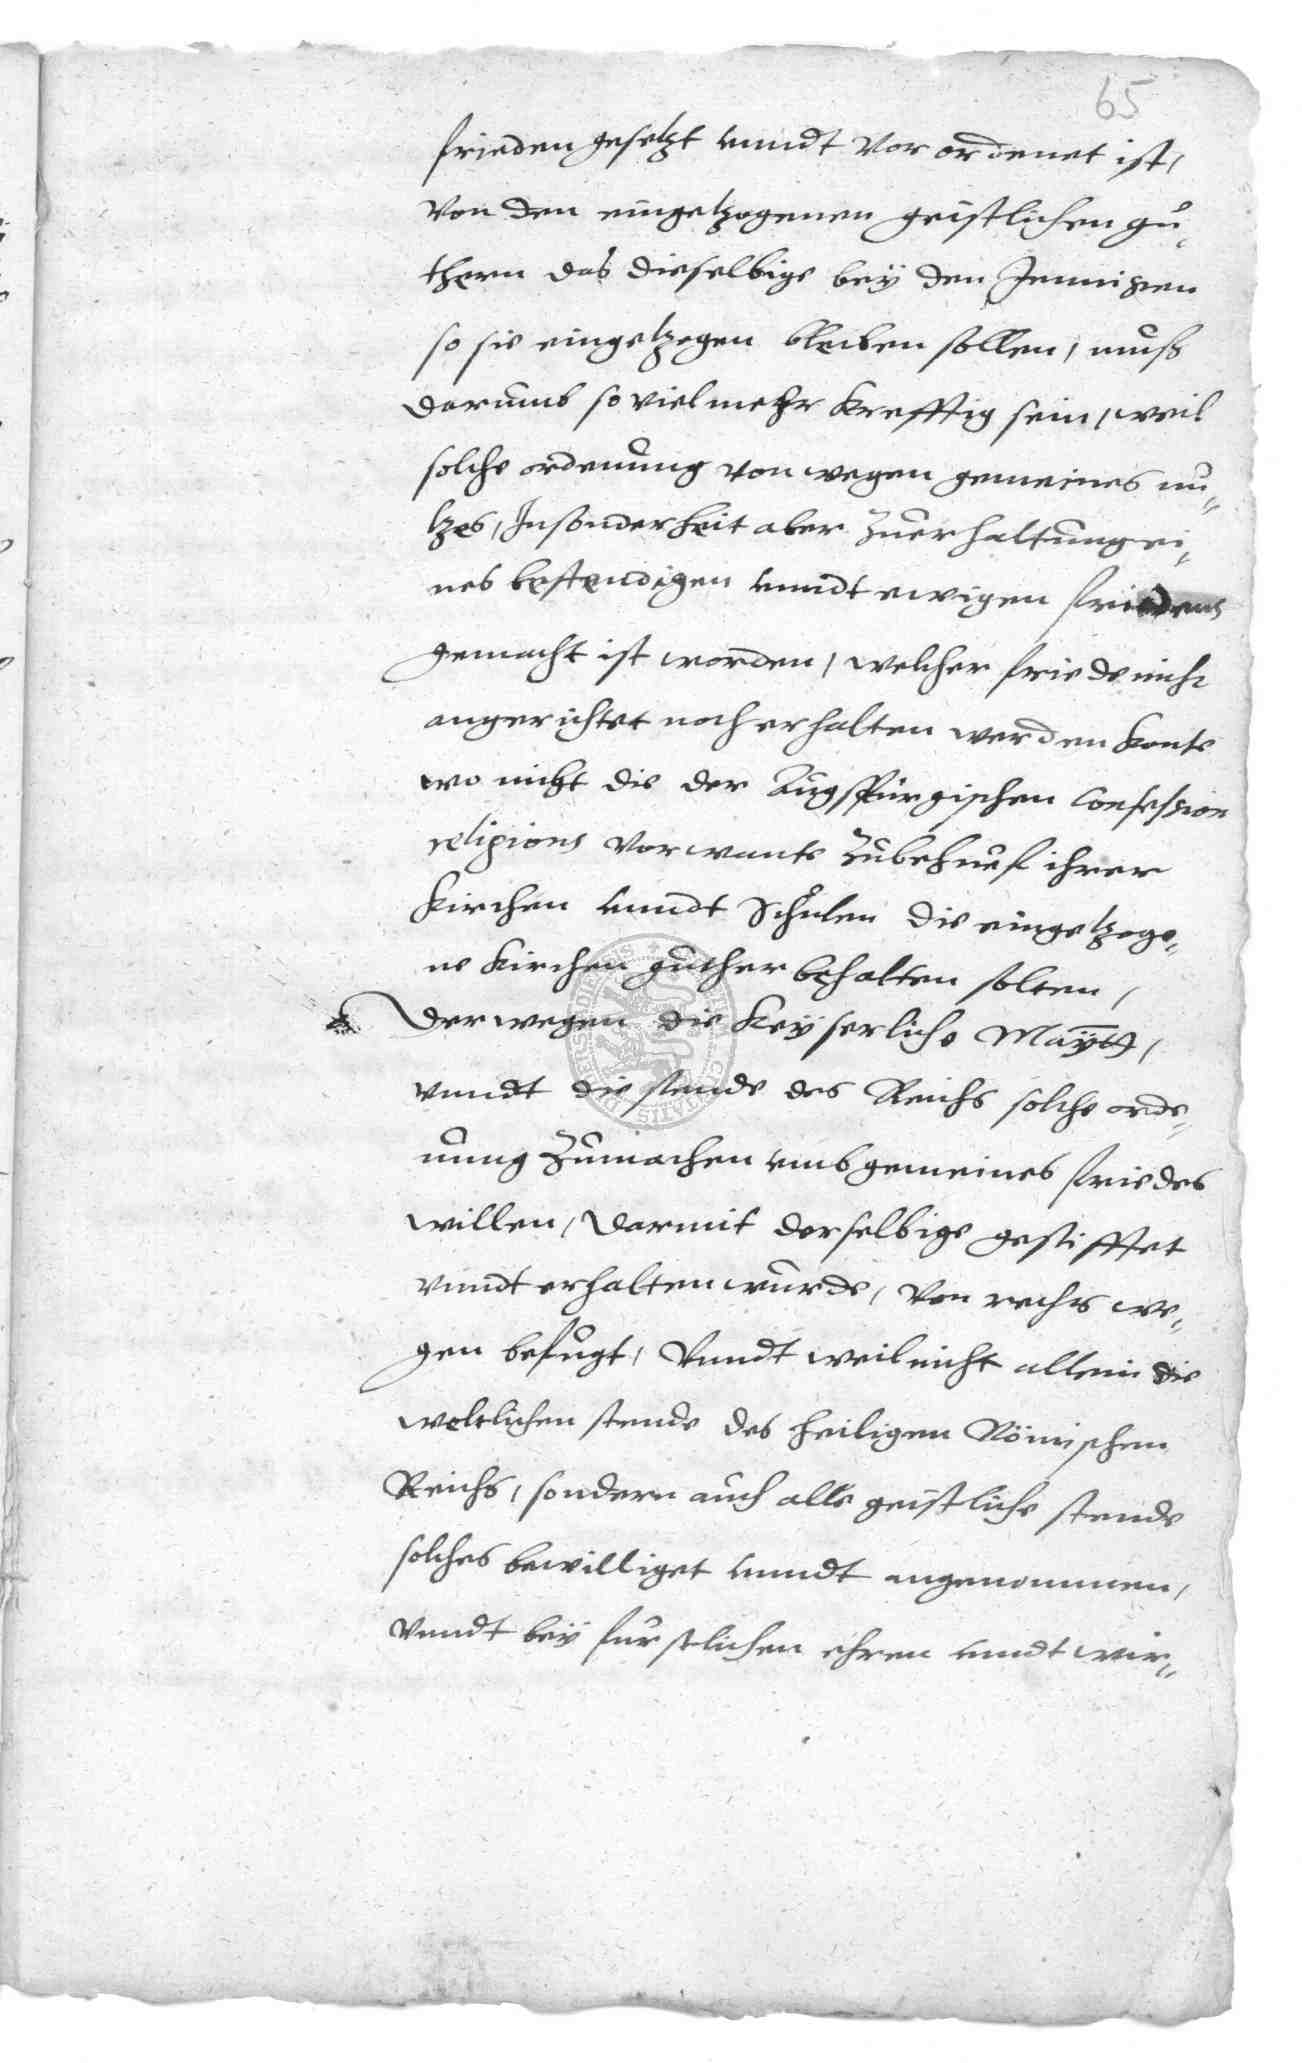 65
frieden gesetzt unndt vor ordenet ist,
Von den eingetzogenen geistlichen gü„
thern das dieselbige beÿ den Jennigen
so sie eingetzogen bleiben sollen, muß
darumb so viel mehr krefftig sein, weil
solche ordenung von wegen gemeines nu„
tzes, Insonderheit aber zuerhaltung ei„
nes bestendigen unndt ewigen friedens
gemacht ist worden, welcher friede nicht
angerichtet noch erhalten werden konte
wo nicht die der Augspurgischen Confession
religions vorwante zubehuef ihrer
Kirchen unndt Schulen die eingetzoge„
ne Kirchen guther behalten solten,
Derwegen die Keÿserliche Maÿtt,
vnndt die stende des Reichs solche orde„
nung zumachen umb gemeines friedes
willen, darmit derselbige gestifftet
vnndt erhalten wurde, von rechts we„
gen befugt, Vnndt weil nicht allein die
weltlichen stende des heiligen Römischen
Reichs, sondern auch alle geistliche stende
solches bewilliget unndt angenommen,
Vnndt beÿ furstlichen ehren unndt wir„